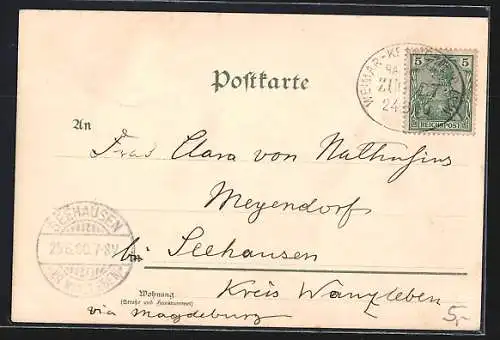 Postkarte
5 5
REICHSPOST
WEIMAR-
ZUG
24
An
Frau Clara von Nathusius
Meyendorf
SEEHAUSEN
25.6.00.7-8V
bei Seehausen
Wohnung
(Straße und Hausnummer)
Kreis Wanzleben
via Magdeburg
5,-